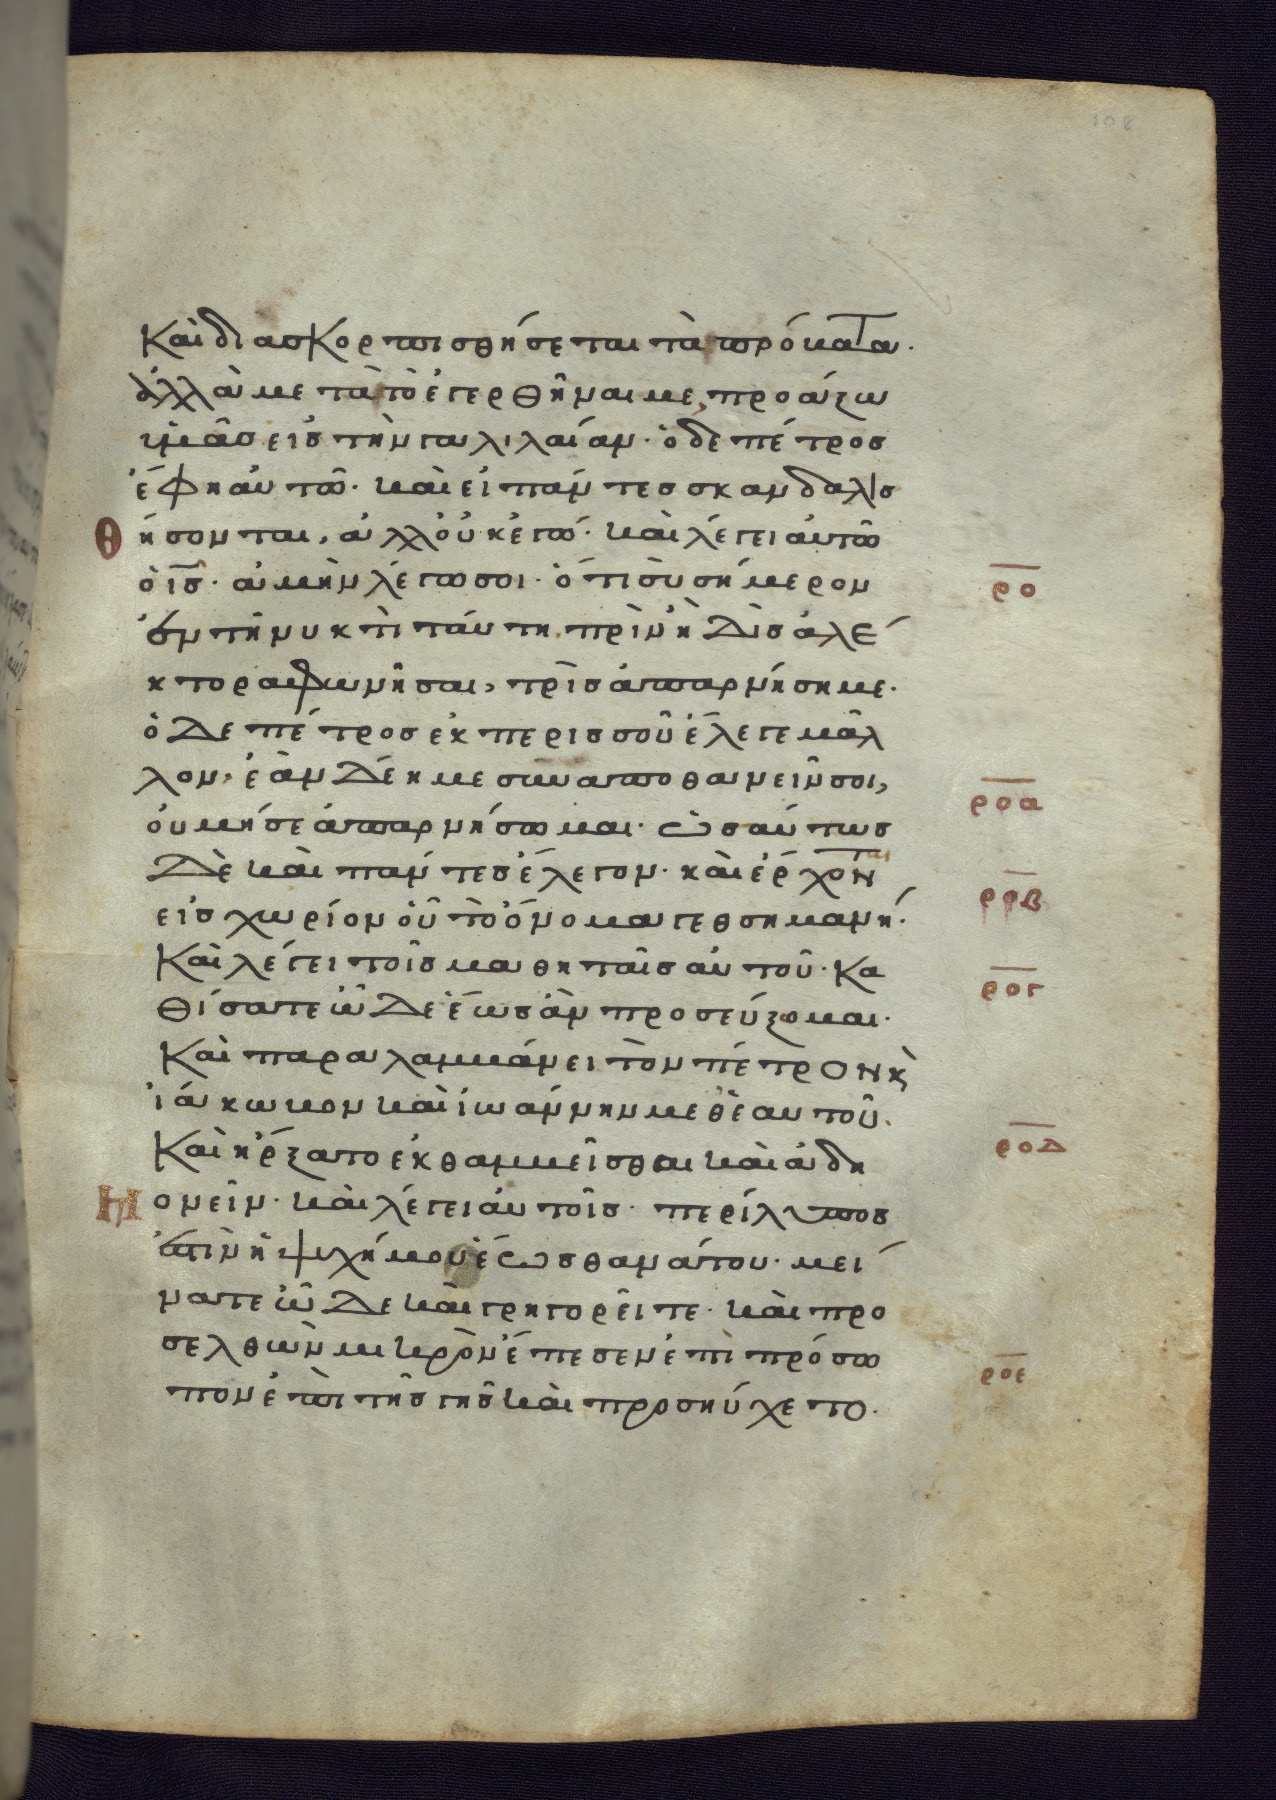 108
Καὶ διασκορπισθήσεται τὰ πρόβατα·
ἀλλὰ μετὰ τὸ ἐγερθῆναι με, προάξω
ὑμᾶς εἰς τὴν γαλιλαίαν· ὁ δὲ πέτρος
ἔφη αὐτῶ· καὶ εἰ πάντες σκανδαλισ
θήσονται, ἀλλ' οὐκ ἐγώ· καὶ λέγει αὐτῶ
ὁ ις̅· ἀμὴν λέγω σοι· ὅτι σὺ σήμερον ρο
ἐν τῆ νυκτὶ ταύτη πρὶν ἢ δὶς ἀλέ
κτορα φωνῆσαι, τρὶς ἀπαρνήση με·
ὁ δὲ πέτρος ἐκ περισσοῦ ἔλεγε μᾶλ
λον, ἐὰν δέη με συναποθανεῖν σοι, ροα
οὐ μή σε ἀπαρνήσωμαι· ὡσαύτως
δὲ καὶ πάντες ἔλεγον· καὶ ἔρχοντ(αι) ροβ
εἰς χωρίον οὗ τὸ ὄνομα γεθσημανή·
Καὶ λέγει τοῖς μαθηταῖς αὐτοῦ· Κα ρογ
θίσατε ὧδε ἕως ἂν προσεύξωμαι·
Καὶ παραλαμβάνει τὸν πέτρον κ(αὶ)
ἰάκωβον καὶ ἰωάννην μεθ' ἑαυτοῦ·
Καὶ ἤρξατο ἐκθαμβεῖσθαι καὶ ἀδη ροδ
μονεῖν· καὶ λέγει αὐτοῖς· περίλυπος
ἐστὶν ἡ ψυχή μου ἕως θανάτου· μεί
νατε ὧδε καὶ γρηγορεῖτε· καὶ προ
σελθὼν μικρὸν ἔπεσεν ἐπὶ πρόσω ροε
πον ἐπὶ τῆς γῆς καὶ προσηύχετο·